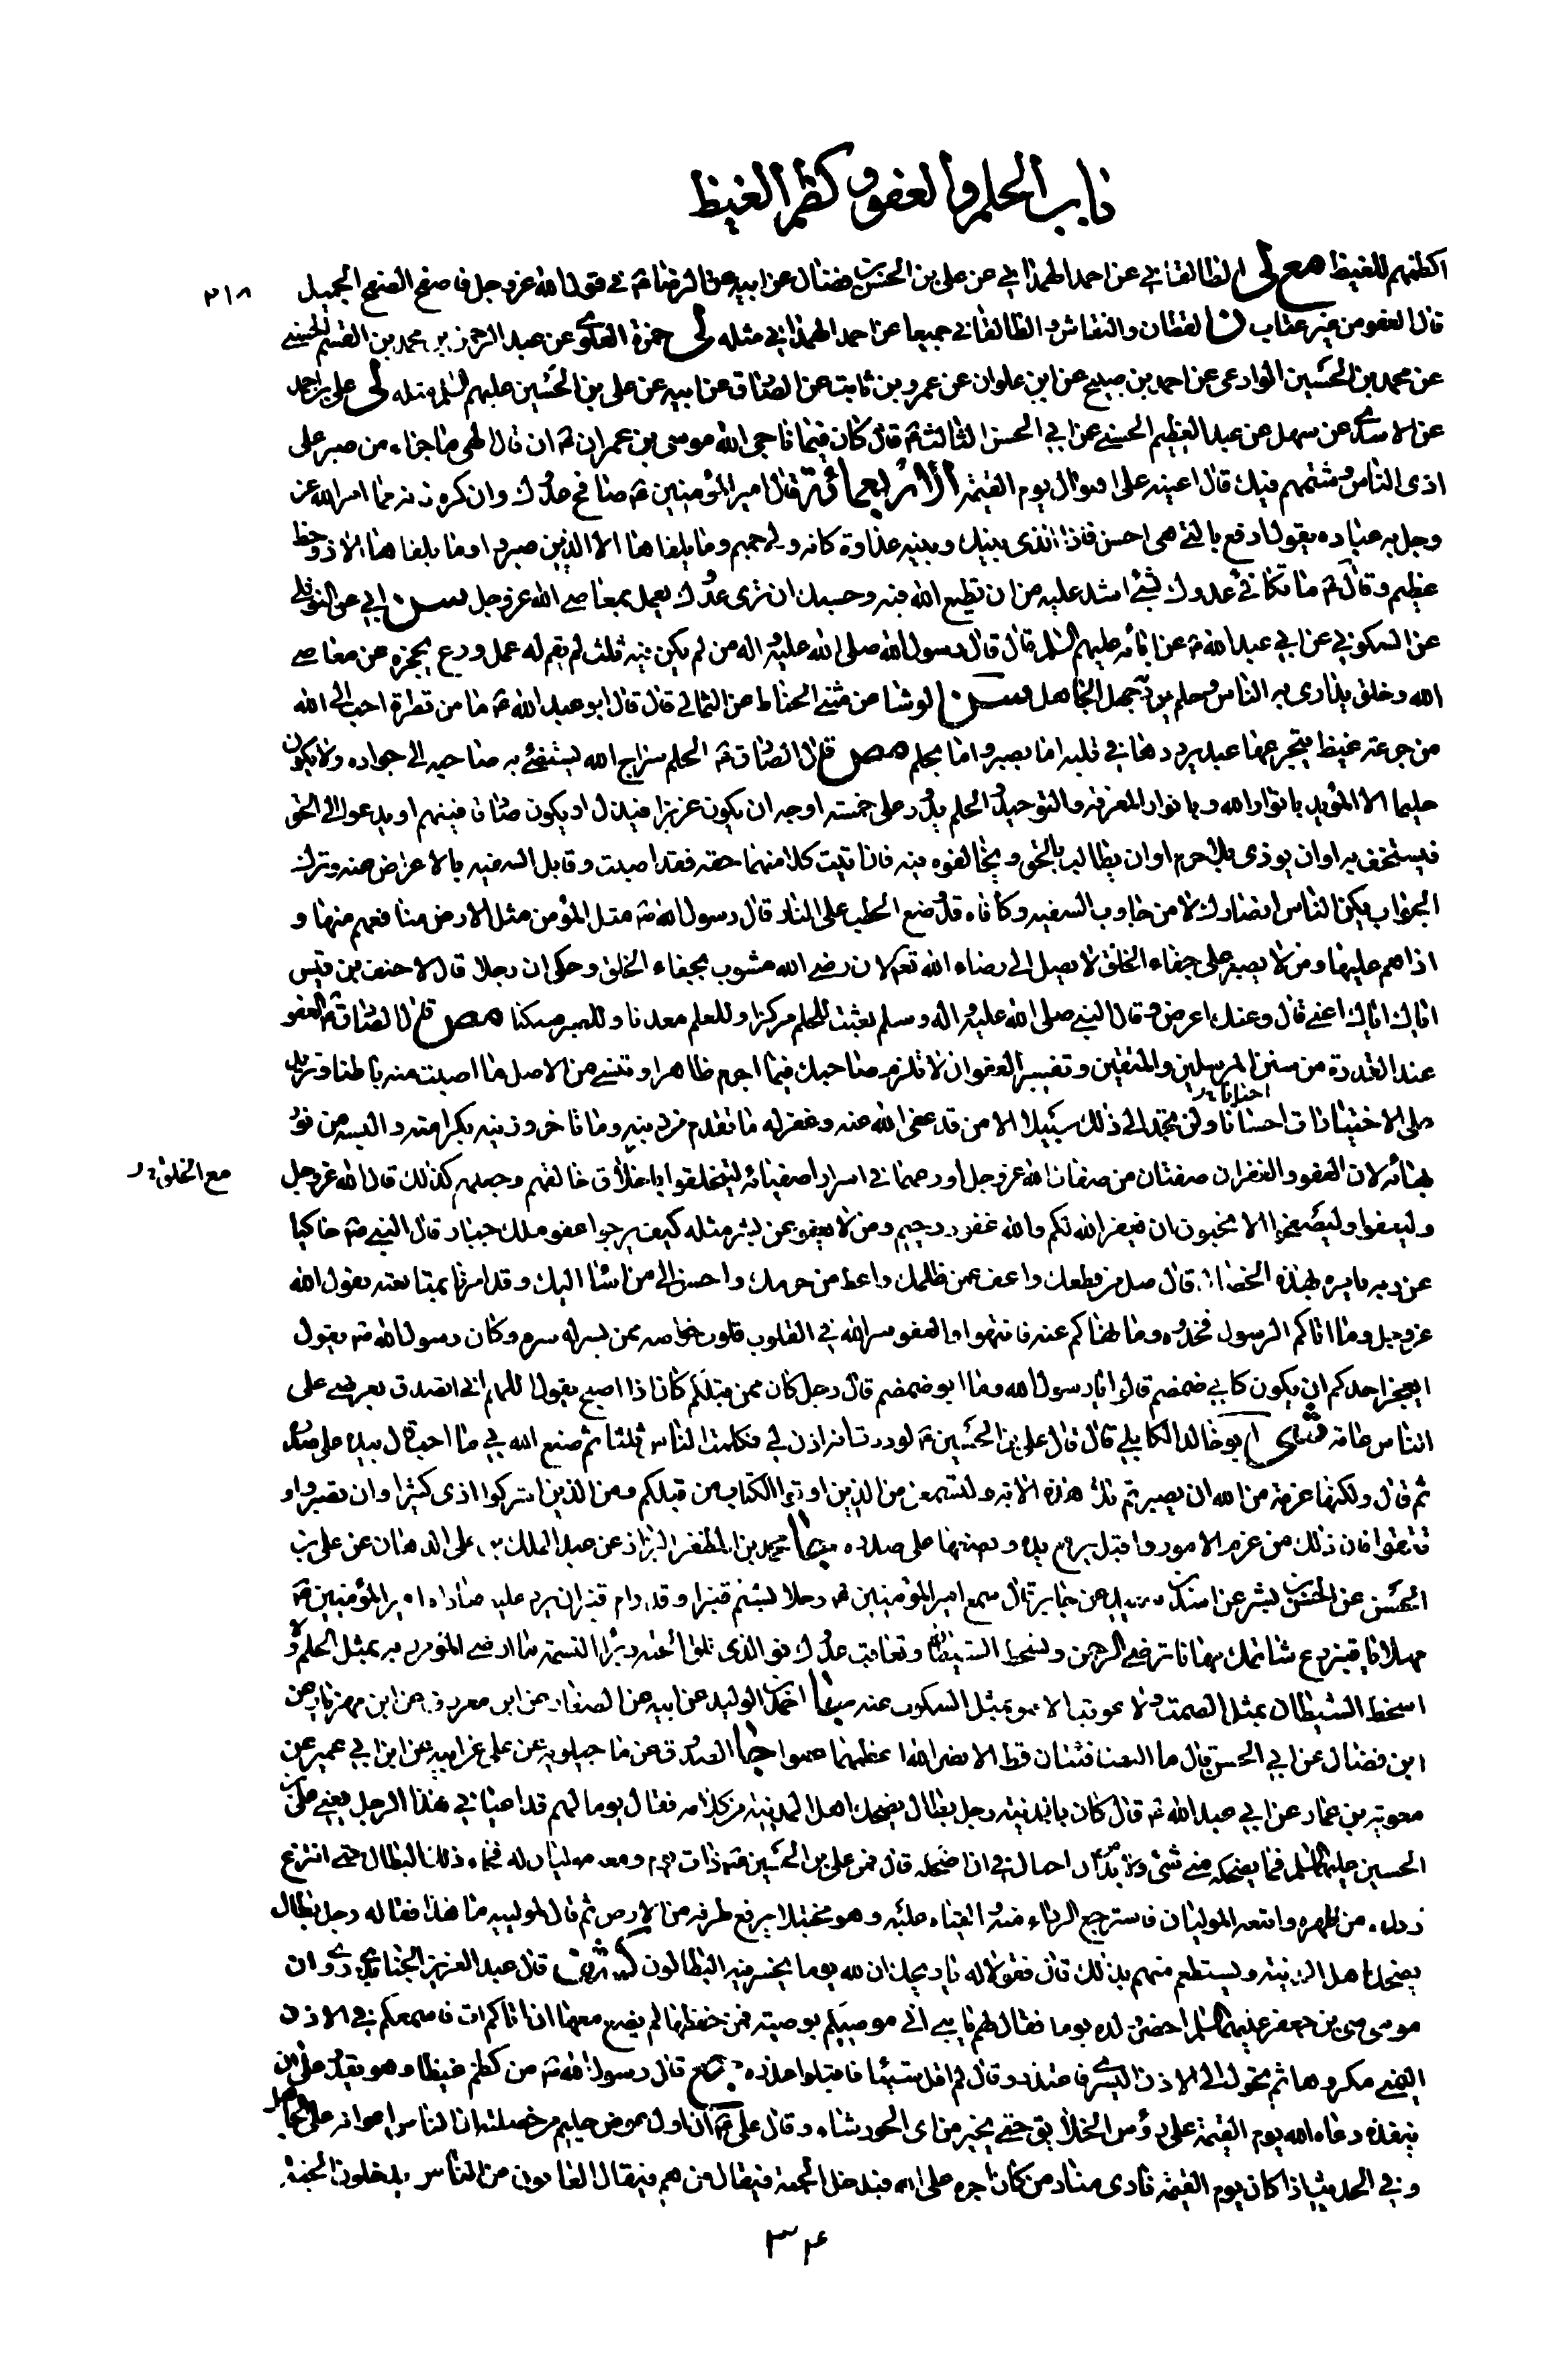 باب الحلم والعفو وكظم الغيظ
٢١٨
اكظمهم للغيظ مع لى الطالقاني عن احمد الهمداني عن علي بن الحسن بن فضال عن ابيه عن الرضا ع في قول الله عز وجل فاصفح الصفح الجميل
قال العفو من غير عتاب ن القطان والنقاش والطالقاني جميعا عن احمد الهمداني مثله لى حمزة العلوي عن عبد الرحمن بن محمد بن القسم الحسني
عن محمد بن الحسين الوادعي عن احمد بن صبيح عن ابن علوان عن عمرو بن ثابت عن الصادق عن ابيه عن علي بن الحسين عليهم السلم مثله لى علي بن احمد
عن الاسدي عن سهل عن عبد العظيم الحسني عن ابي الحسن الثالث ع قال كان فيما ناجى الله موسى بن عمران ع ان قال الهي ما جزاء من صبر على
اذى الناس وشتمهم فيك قال اعينه على اهوال يوم القيمة الأربعمائة قال امير المؤمنين ع صافح عدوك وان كره فانه مما امر الله عز
وجل به عباده يقول ادفع بالتي هي احسن فاذا الذي بينك وبينه عداوة كانه ولي حميم وما يلقاها الا الذين صبروا وما يلقاها الا ذو حظ
عظيم وقال ع ما تكافي عدوك بشيء اشد عليه من ان تطيع الله فيه وحسبك ان ترى عدوك يعمل بمعاصي الله عز وجل سن ابي عن النوفلي
عن السكوني عن ابي عبد الله ع عن ابائه عليهم السلم قال قال رسول الله صلى الله عليه واله من لم يكن فيه ثلث لم يقم له عمل ورع يحجزه عن معاصي
الله وخلق يداري به الناس وحلم يرد به جهل الجاهل سن الوشا عن مثنى الحناط عن الثمالي قال قال ابو عبد الله ع ما من قطرة احب الى الله
من جرعة غيظ يتجرعها عبد يرددها في قلبه اما بصبر واما بحلم مص قال الصادق ع الحلم سراج الله يستضئ به صاحبه الى جواره ولا يكون
حليما الا المؤيد بانوار الله وبانوار المعرفة والتوحيد والحلم يدور على خمسة اوجه ان يكون عزيزا فيذل او يكون صادقا فيتهم او يدعو الى الحق
فيستخف به او ان يوذى بلا جرم او ان يطالب بالحق ويخالفوه فيه فان اتيت كلا منهما حقه فقد اصبت وقابل السفيه بالاعراض عنه وترك
الجواب يكن الناس انصارك لان من جاوب السفيه وكافاه قد وضع الحطب على النار قال رسول الله ص مثل المؤمن مثل الارض منافعهم منها و
اذاهم عليها ومن لا يصبر على جفاء الخلق لا يصل الى رضاء الله تعم لان رضى الله مشوب بجفاء الخلق وحكي ان رجلا قال لاحنف بن قيس
اياك اياك اعني قال وعنك اعرض وقال النبي صلى الله عليه واله وسلم بعثت للحلم مركزا وللعلم معدنا وللصبر مسكنا مص قال الصادق ع العفو
عند القدرة من سنن المرسلين والمتقين وتفسير العفو ان لا تلزم صاحبك فيما اجرم ظاهرا وتنسى من الاصل ما اصبت منه باطنا وتزيد
على الاختيارات احسانا ولن يجد الى ذلك سبيلا الا من قد عفى الله عنه وغفر له ما تقدم من ذنبه وما تاخر وزينه بكرامته والبسه من نور
بهائه لان العفو والغفران صفتان من صفات الله عز وجل اودعهما في اسرار اصفيائه ليتخلقوا باخلاق خالقهم وجعلهم كذلك قال الله عز وجل
مع الخلق
وليعفوا وليصفحوا الا تحبون ان يغفر الله لكم والله غفور رحيم ومن لا يعفو عن بشر مثله كيف يرجوا عفو ملك جبار قال النبي ص حاكيا
عن ربه يامره بهذه الخصال قال صل من قطعك واعف عمن ظلمك واعط من حرمك واحسن الى من اساء اليك وقد امرنا بمتابعته بقول الله
عز وجل وما اتاكم الرسول فخذوه وما نهاكم عنه فانتهوا والعفو سر الله في القلوب قلوب خواصه ممن يسر له سره وكان رسول الله ص يقول
ايعجز احدكم ان يكون كابي ضمضم قالوا يا رسول الله وما ابو ضمضم قال رجل كان ممن قبلكم كان اذا اصبح يقول اللهم اني اتصدق بعرضي على
الناس عامة شى ابو خالد الكابلي قال قال علي بن الحسين ع لوددت انه اذن لي فكلمت الناس ثلثا ثم صنع الله بي ما احب قال بيده على صدره
ثم قال ولكنها عزمة من الله ان يصبر ثم تلا هذه الاية ولتسمعن من الذين اوتوا الكتاب من قبلكم ومن الذين اشركوا اذى كثيرا وان تصبروا و
تتقوا فان ذلك من عزم الامور واقبل يرفع يده ويضعها على صدره جا محمد بن المظفر البزاز عن عبد الملك بن علي الدهان عن علي بن
الحسن عن الحسن بن بشر عن اسد بن سعيد عن جابر قال سمع امير المؤمنين ع رجلا يشتم قنبرا وقد رام قنبر ان يرد عليه فناداه امير المؤمنين ع
مهلا يا قنبر دع شاتمك مهانا ترضى الرحمن وتسخط الشيطان وتعاقب عدوك فو الذي فلق الحبة وبرا النسمة ما ارضى المؤمن ربه بمثل الحلم ولا
اسخط الشيطان بمثل الصمت ولا عوقب الاحمق بمثل السكوت عنه جا احمد بن الوليد عن ابيه عن الصفار عن ابن معروف عن ابن مهزيار عن
ابن فضال عن ابي الحسن قال ما التقت فئتان قط الا نصر الله اعظمهما عفوا جا الصدوق عن ماجيلويه عن علي عن ابيه عن ابن ابي عمير عن
معوية بن عمار عن ابي عبد الله ع قال كان بالمدينة رجل بطال يضحك اهل المدينة من كلامه فقال يوما لهم قد اعياني هذا الرجل يعني علي بن
الحسين عليهما السلم فما يضحكه مني شئ ولا بد من ان احتال في ان اضحكه قال فمر علي بن الحسين ع ذات يوم ومعه موليان له فجاء ذلك البطال حتى انتزع
رداءه من ظهره واتبعه الموليان فاسترجعا الرداء منه والقياه عليه وهو مخبت لا يرفع طرفه من الارض ثم قال لمولييه ما هذا فقالا له رجل بطال
يضحك اهل المدينة ويستطعم منهم بذلك قال فقولا له يا ويحك ان لله يوما يخسر فيه البطالون كشف قال عبد العزيز الجنابذي روي ان
موسى بن جعفر عليهما السلم احضر ولده يوما فقال لهم يا بني اني موصيكم بوصية فمن حفظها لم يضع معها ان اتاكم ات فاسمعكم في الاذن
اليمنى مكروها ثم تحول الى الاذن اليسرى فاعتذر وقال لم اقل شيئا فاقبلوا عذره جع قال رسول الله ص من كظم غيظا وهو يقدر على ان
ينفذه دعاه الله يوم القيمة على رؤس الخلائق حتى يخير من اي الحور شاء وقال علي ع ان اول عوض الحليم من خصلته ان الناس اعوانه على الجاهل
وفي الحديث اذا كان يوم القيمة نادى مناد من كان اجره على الله فيدخل الجنة فيقال من هم فيقال العافون من الناس يدخلون الجنة
٣٣٤